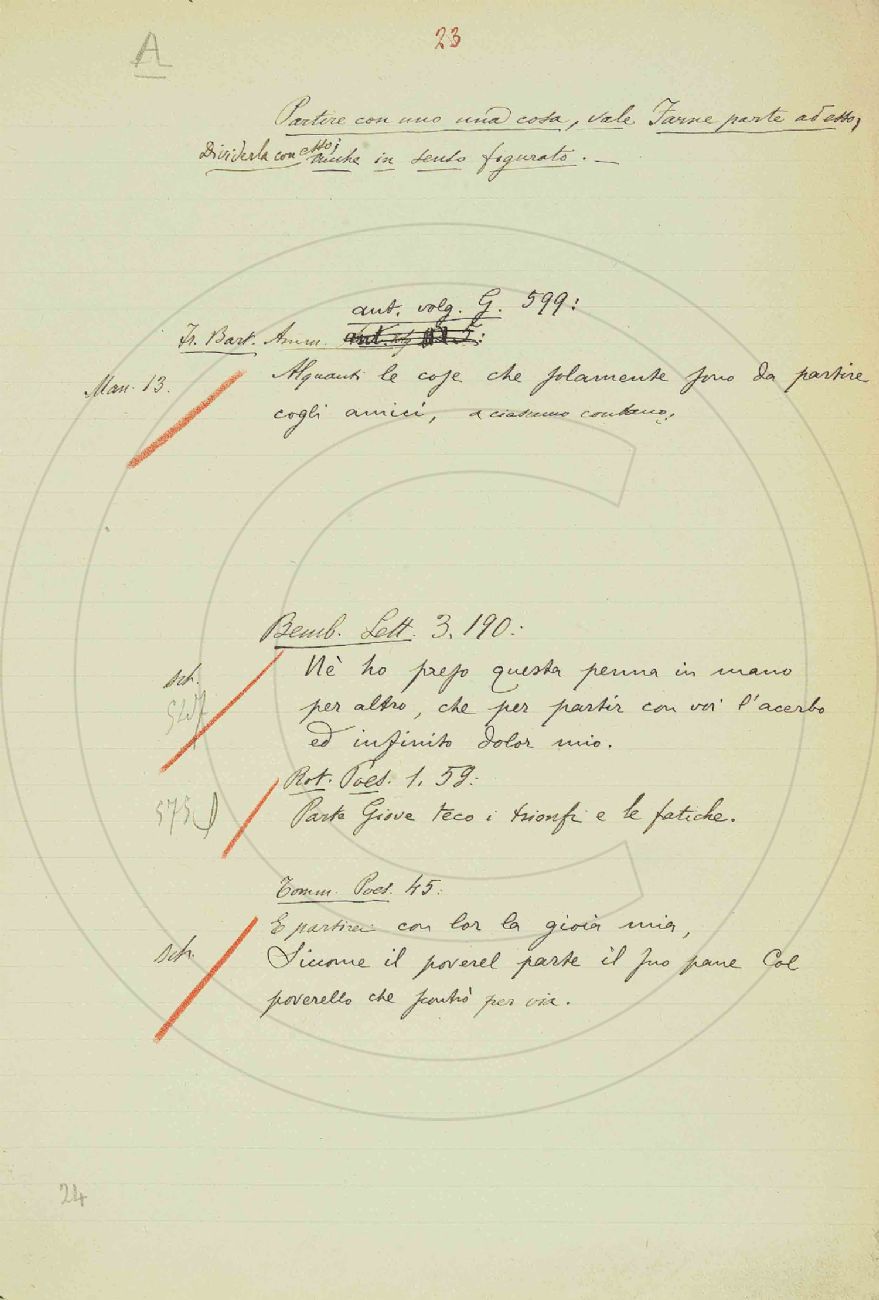 A
23
Partire con uno una cosa, vale Farne parte ad esso,
Dividerla con esso; anche in senso figurato. —
ant. volg. G. 599:
Fr. Bart. Amm.
Man. 13.
Alquanti le cose che solamente sono da partire
cogli amici, a ciascuno contano.
Bemb. Lett. 3. 190:
Sch.
Nè ho preso questa penna in mano
per altro, che per partir con voi l'acerbo
ed infinito dolor mio.
Rot. Poes. 1. 59:
Parte Giove teco i trionfi e le fatiche.
Tomm. Poes. 45:
Sch.
E partirei con lor la gioia mia,
Siccome il poverel parte il suo pane Col
poverello che scontrò per via.
24